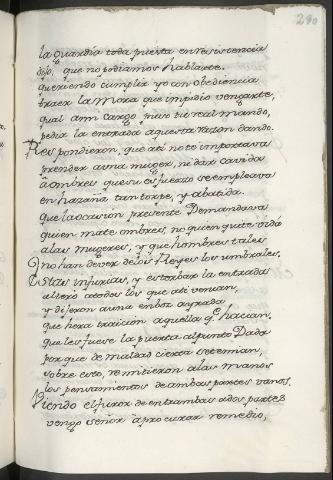 290
la guardia toda puesta en resistencia
dijo, que no podiamos hablarte.
queriendo cumplir yo con obediencia
traer la Mora que impidio vengarte,
qual a mi cargo puso tu real mando,
pedia la entrada aquesta razon dando.
Respondieron, que ati no te importava
prender a una muger, ni dar cavida
a ombres que su esfuerzo se empleava
en hazaña tan torpe, y abatida.
que la ocasion presente Demandava
quien mate ombres, no quien quite vida
a las mugeres, y que hombres tales
no han de ver de los Reyes los umbrales.
Estas injurias, y estorbar la entrada
altero a todos los que ati venian,
y dijeron a una en boz ayrada
que hera traicion aquella q̃ hacian.
que les fuese la puerta al punto Dada
por que de maldad cierta se temian,
sobre esto, remitieron a las manos
los pensamientos de ambas partes vanos.
Viendo el furor de entrambas a dos partes
vengo señor a procurar remedio,